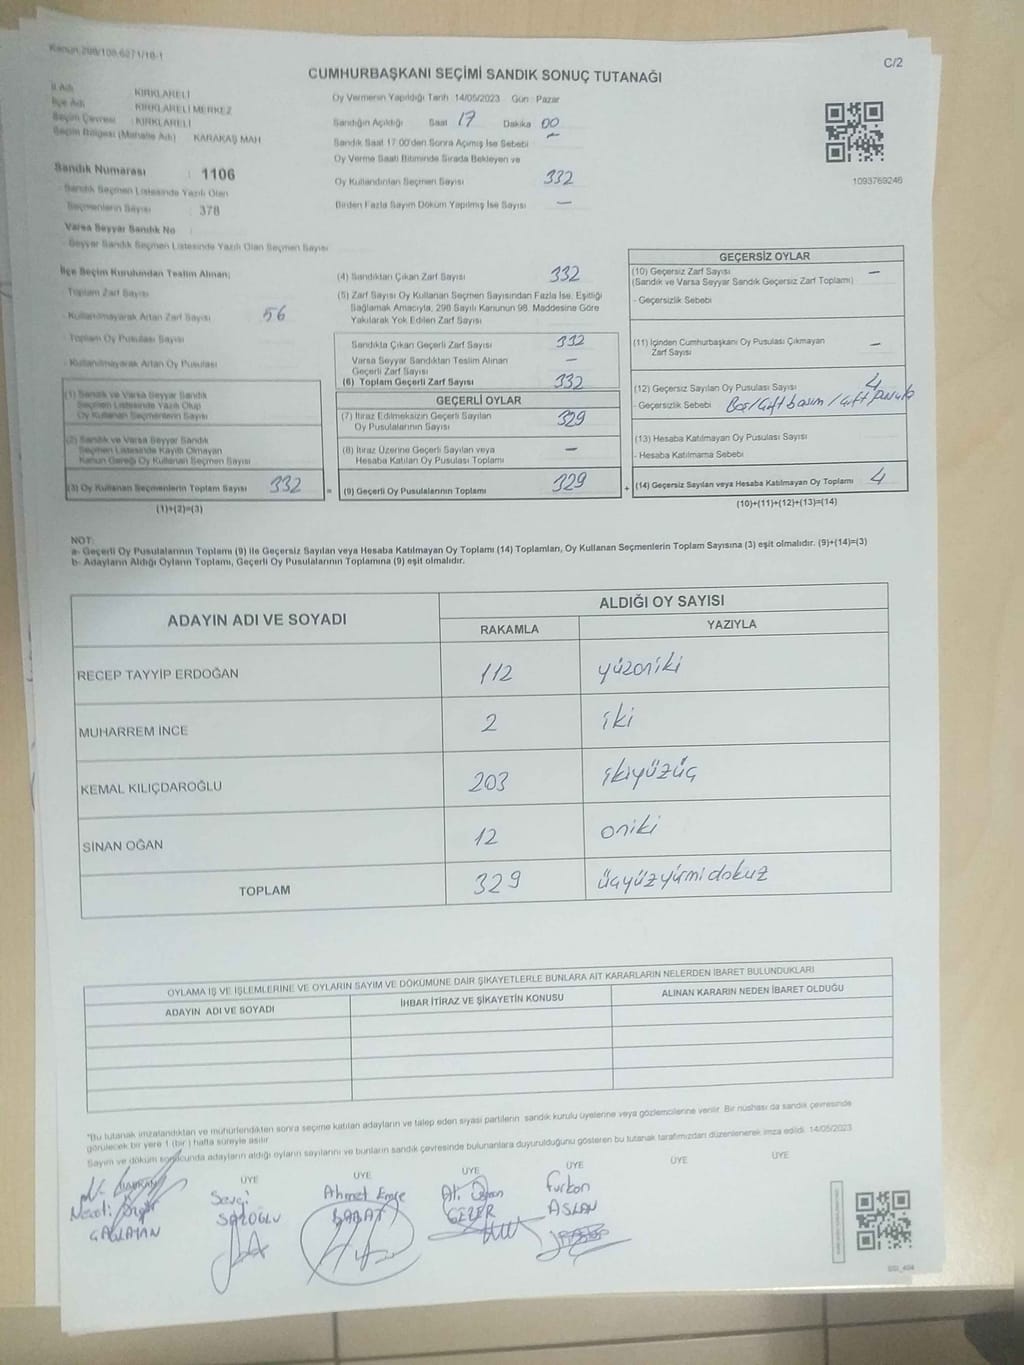 Kanun 298/109,6271/18-1
C/2
CUMHURBAŞKANI SEÇİMİ SANDIK SONUÇ TUTANAĞI
İl Adı : KIRKLARELİ
İlçe Adı : KIRKLARELİ MERKEZ
Seçim Çevresi : KIRKLARELİ
Seçim Bölgesi (Mahalle Adı) : KARAKAŞ MAH
Oy Vermenin Yapıldığı Tarih 14/05/2023 Gün : Pazar
Sandığın Açıldığı Saat 17 Dakika 00
Sandık Saat 17:00'den Sonra Açılmış İse Sebebi —
Oy Verme Saati Bitiminde Sırada Bekleyen ve
Oy Kullandırılan Seçmen Sayısı 332
Birden Fazla Sayım Döküm Yapılmış İse Sayısı —
1093769246
Sandık Numarası : 1106
- Sandık Seçmen Listesinde Yazılı Olan
Seçmenlerin Sayısı : 378
Varsa Seyyar Sandık No
- Seyyar Sandık Seçmen Listesinde Yazılı Olan Seçmen Sayısı
İlçe Seçim Kurulundan Teslim Alınan;
- Toplam Zarf Sayısı
- Kullanılmayarak Artan Zarf Sayısı 56
- Toplam Oy Pusulası Sayısı
- Kullanılmayarak Artan Oy Pusulası
(1) Sandık ve Varsa Seyyar Sandık
Seçmen Listesinde Yazılı Olup
Oy Kullanan Seçmenlerin Sayısı
(2) Sandık ve Varsa Seyyar Sandık
Seçmen Listesinde Kayıtlı Olmayan
Kanun Gereği Oy Kullanan Seçmen Sayısı
(3) Oy Kullanan Seçmenlerin Toplam Sayısı 332
(1)+(2)=(3)
(4) Sandıktan Çıkan Zarf Sayısı 332
(5) Zarf Sayısı Oy Kullanan Seçmen Sayısından Fazla İse, Eşitliği
Sağlamak Amacıyla, 298 Sayılı Kanunun 98. Maddesine Göre
Yakılarak Yok Edilen Zarf Sayısı
Sandıkta Çıkan Geçerli Zarf Sayısı 332
Varsa Seyyar Sandıktan Teslim Alınan
Geçerli Zarf Sayısı —
(6) Toplam Geçerli Zarf Sayısı 332
GEÇERLİ OYLAR
(7) İtiraz Edilmeksizin Geçerli Sayılan
Oy Pusulalarının Sayısı 329
(8) İtiraz Üzerine Geçerli Sayılan veya
Hesaba Katılan Oy Pusulası Toplamı —
= (9) Geçerli Oy Pusulalarının Toplamı 329
GEÇERSİZ OYLAR
(10) Geçersiz Zarf Sayısı —
(Sandık ve Varsa Seyyar Sandık Geçersiz Zarf Toplamı)
- Geçersizlik Sebebi
(11) İçinden Cumhurbaşkanı Oy Pusulası Çıkmayan
Zarf Sayısı —
(12) Geçersiz Sayılan Oy Pusulası Sayısı 4
- Geçersizlik Sebebi Boş/Çift basım/Çift pusula
(13) Hesaba Katılmayan Oy Pusulası Sayısı
- Hesaba Katılmama Sebebi
+ (14) Geçersiz Sayılan veya Hesaba Katılmayan Oy Toplamı 4
(10)+(11)+(12)+(13)=(14)
NOT:
a- Geçerli Oy Pusulalarının Toplamı (9) ile Geçersiz Sayılan veya Hesaba Katılmayan Oy Toplamı (14) Toplamları, Oy Kullanan Seçmenlerin Toplam Sayısına (3) eşit olmalıdır. (9)+(14)=(3)
b- Adayların Aldığı Oyların Toplamı, Geçerli Oy Pusulalarının Toplamına (9) eşit olmalıdır.
ADAYIN ADI VE SOYADI ALDIĞI OY SAYISI
RAKAMLA YAZIYLA
RECEP TAYYİP ERDOĞAN 112 yüzoniki
MUHARREM İNCE 2 iki
KEMAL KILIÇDAROĞLU 203 ikiyüzüç
SİNAN OĞAN 12 oniki
TOPLAM 329 üçyüzyirmidokuz
OYLAMA İŞ VE İŞLEMLERİNE VE OYLARIN SAYIM VE DÖKÜMÜNE DAİR ŞİKAYETLERLE BUNLARA AİT KARARLARIN NELERDEN İBARET BULUNDUKLARI
ADAYIN ADI VE SOYADI İHBAR İTİRAZ VE ŞİKAYETİN KONUSU ALINAN KARARIN NEDEN İBARET OLDUĞU
"Bu tutanak imzalandıktan ve mühürlendikten sonra seçime katılan adayların ve talep eden siyasi partilerin sandık kurulu üyelerine veya gözlemcilerine verilir. Bir nüshası da sandık çevresinde
görülecek bir yere 1 (bir ) hafta süreyle asılır
Sayım ve döküm sonucunda adayların aldığı oyların sayılarını ve bunların sandık çevresinde bulunanlara duyurulduğunu gösteren bu tutanak tarafımızdan düzenlenerek imza edildi. 14/05/2023
BAŞKAN ÜYE ÜYE ÜYE ÜYE ÜYE ÜYE
Necati
ÇAĞLAYAN
Sevgi
Ahmet Emre
Ali
GEZER
Furkan
ASLAN